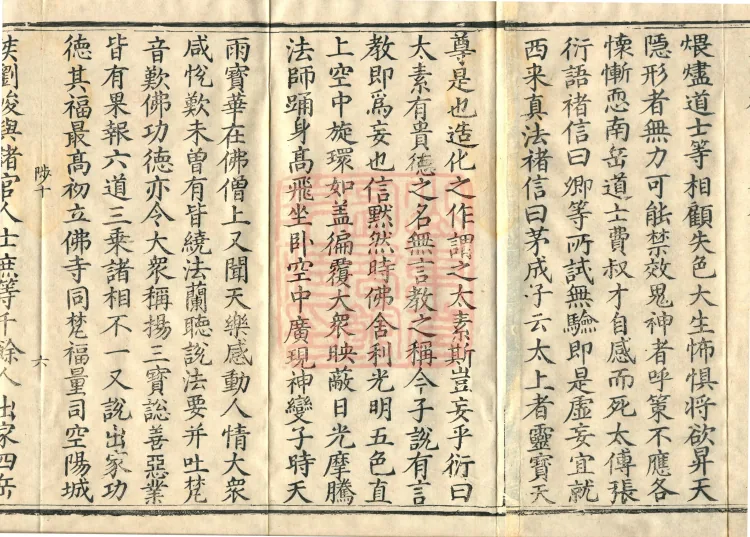 煨燼道士等相顧失色大生怖懼将欲昇天
隱形者無力可能禁效鬼神者呼策不應各
懐慚恧南岳道士費叔才自感而死太傅張
衍語褚信曰卿等所試無驗即是虛妄宜就
西来真法褚信曰茅成子云太上者靈寶天
尊是也造化之作謂之太素斯豈妄乎衍曰
太素有貴德之名無言教之稱今子說有言
教即為妄也信黙然時佛舍利光明五色直
上空中旋環如盖徧覆大衆映蔽日光摩騰
法師踊身髙飛坐卧空中廣現神變于時天
雨寶華在佛僧上又聞天樂感動人情大衆
咸恱歎未曽有皆繞法蘭聽說法要并吐梵
音歎佛功德亦令大衆稱揚三寶說善惡業
皆有果報六道三乗諸相不一又說出家功
徳其福最髙初立佛寺同梵福量司空陽城
陟千 六
侯劉峻與諸官人士庶等千餘人出家四岳